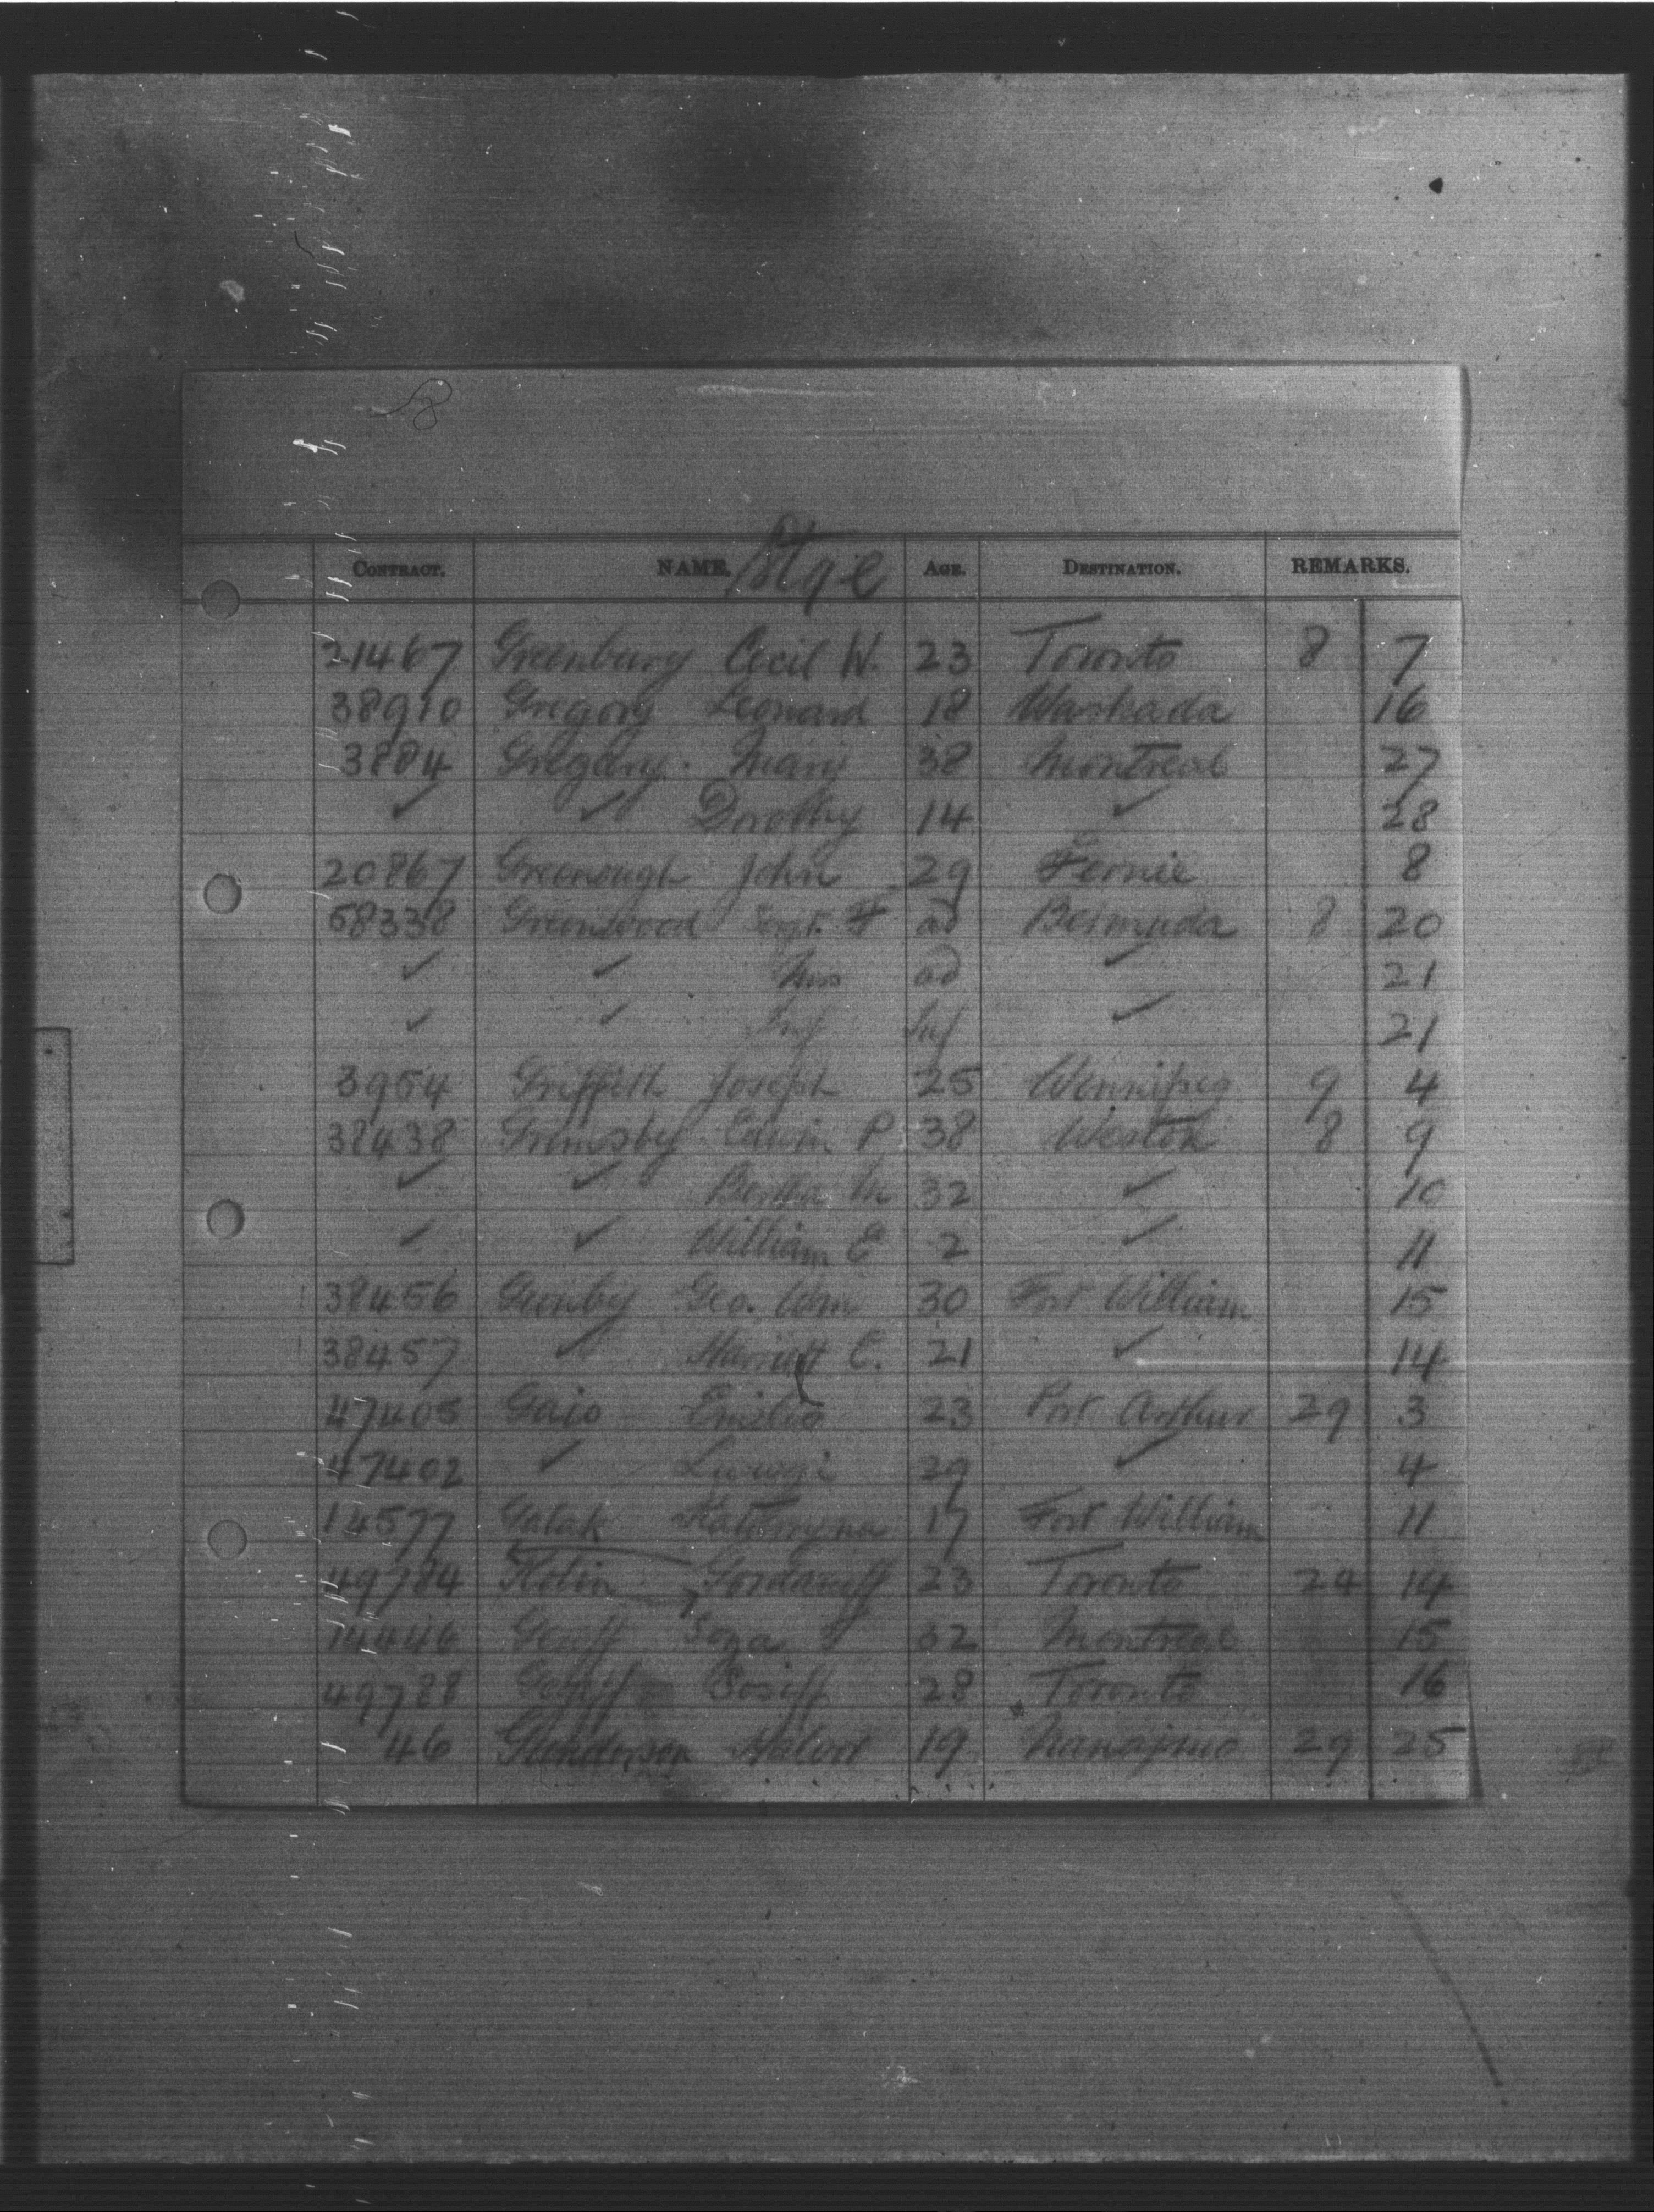 8
CONTRACT. NAME. Stge AGE. DESTINATION. REMARKS.
21467 Greenbury Cecil W. 23 Toronto 8 7
38910 Gregory Leonard 18 Waskada 16
3884 Gregory Mary 38 Montreal 27
✓ ✓ Dorothy 14 ✓ 28
20867 Greenough John 29 Fernie 8
58338 Greenwood Sergt. F ad Bermuda 8 20
✓ ✓ Mrs ad ✓ 21
✓ ✓ Inf Inf ✓ 21
3954 Griffith Joseph 25 Winnipeg 9 4
38438 Grimsby Edwin P 38 Weston 8 9
✓ ✓ Bertha M 32 ✓ 10
✓ ✓ William E 2 ✓ 11
38456 Geo. Wm 30 Fort William 15
38457 ✓ Harriett C. 21 ✓ 14
47405 Gaio Emilio 23 Port Arthur 29 3
47402 ✓ Luigi 29 ✓ 4
14577 Galak Katteryna 17 Fort William 11
49784 Kolin Gordanoff 23 Toronto 24 14
14446 32 Montreal 15
49788 28 Toronto 16
46 Halvor 19 Nanajmo 29 25